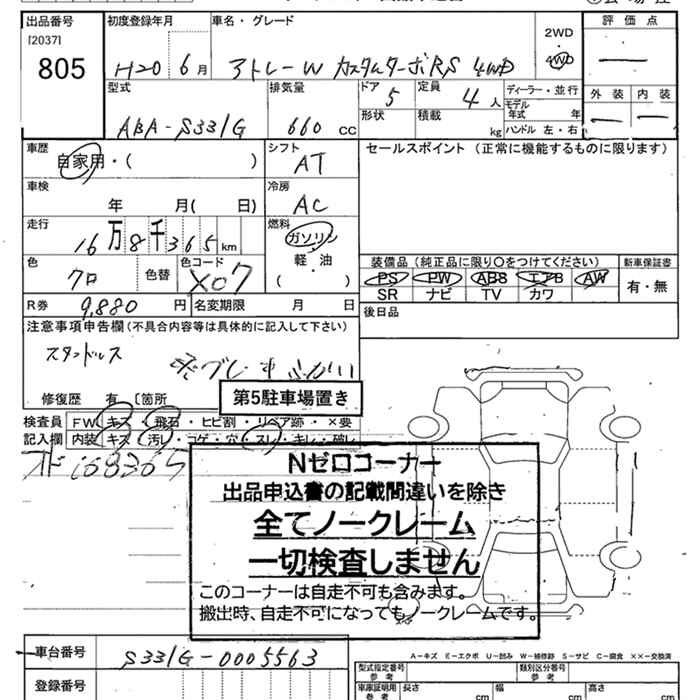 出品番号 初度登録年月 車名・グレード 評価点
[2037] 2WD
805 H20 6月 アトレーW カスタムターボRS 4WD 4WD
外装 内装
型式 排気量 ドア 5 定員 4人 ディーラー・並行
モデル年式 年
ABA-S331G 660 CC 形状 積載 kg ハンドル 左・右
車歴 シフト セールスポイント (正常に機能するものに限ります)
自家用・( ) AT
車検 冷房
年 月( 日) AC
走行 燃料
16万8千365km ガソリン
軽・油
( )
色 色替 色コード 装備品 (純正品に限り○をつけてください) 新車保証書
クロ X07 PS PW AB8 エアB AW 有・無
SR ナビ TV カワ
R券 9,880円 名変期限 月 日 後日品
注意事項申告欄(不具合内容等は具体的に記入して下さい)
修復歴 有 〔箇所
第5駐車場置き
検査員 FW キズ・飛石・ヒビ割・リペア跡・×要
記入欄 内装 キズ・汚レ・コゲ・穴・スレ・キレ・破レ
168365
Nゼロコーナー
出品申込書の記載間違いを除き
全てノークレーム
一切検査しません
このコーナーは自走不可も含みます。
搬出時、自走不可になってもノークレームです。
A-キズ E-エクボ U-凹み W-補修跡 S-サビ C-腐食 ××-交換済
車台番号 S331G-0005563
型式指定番号 参考 類別区分番号 参考
登録番号 車庫証明用 参考 長さ cm 幅 cm 高さ cm